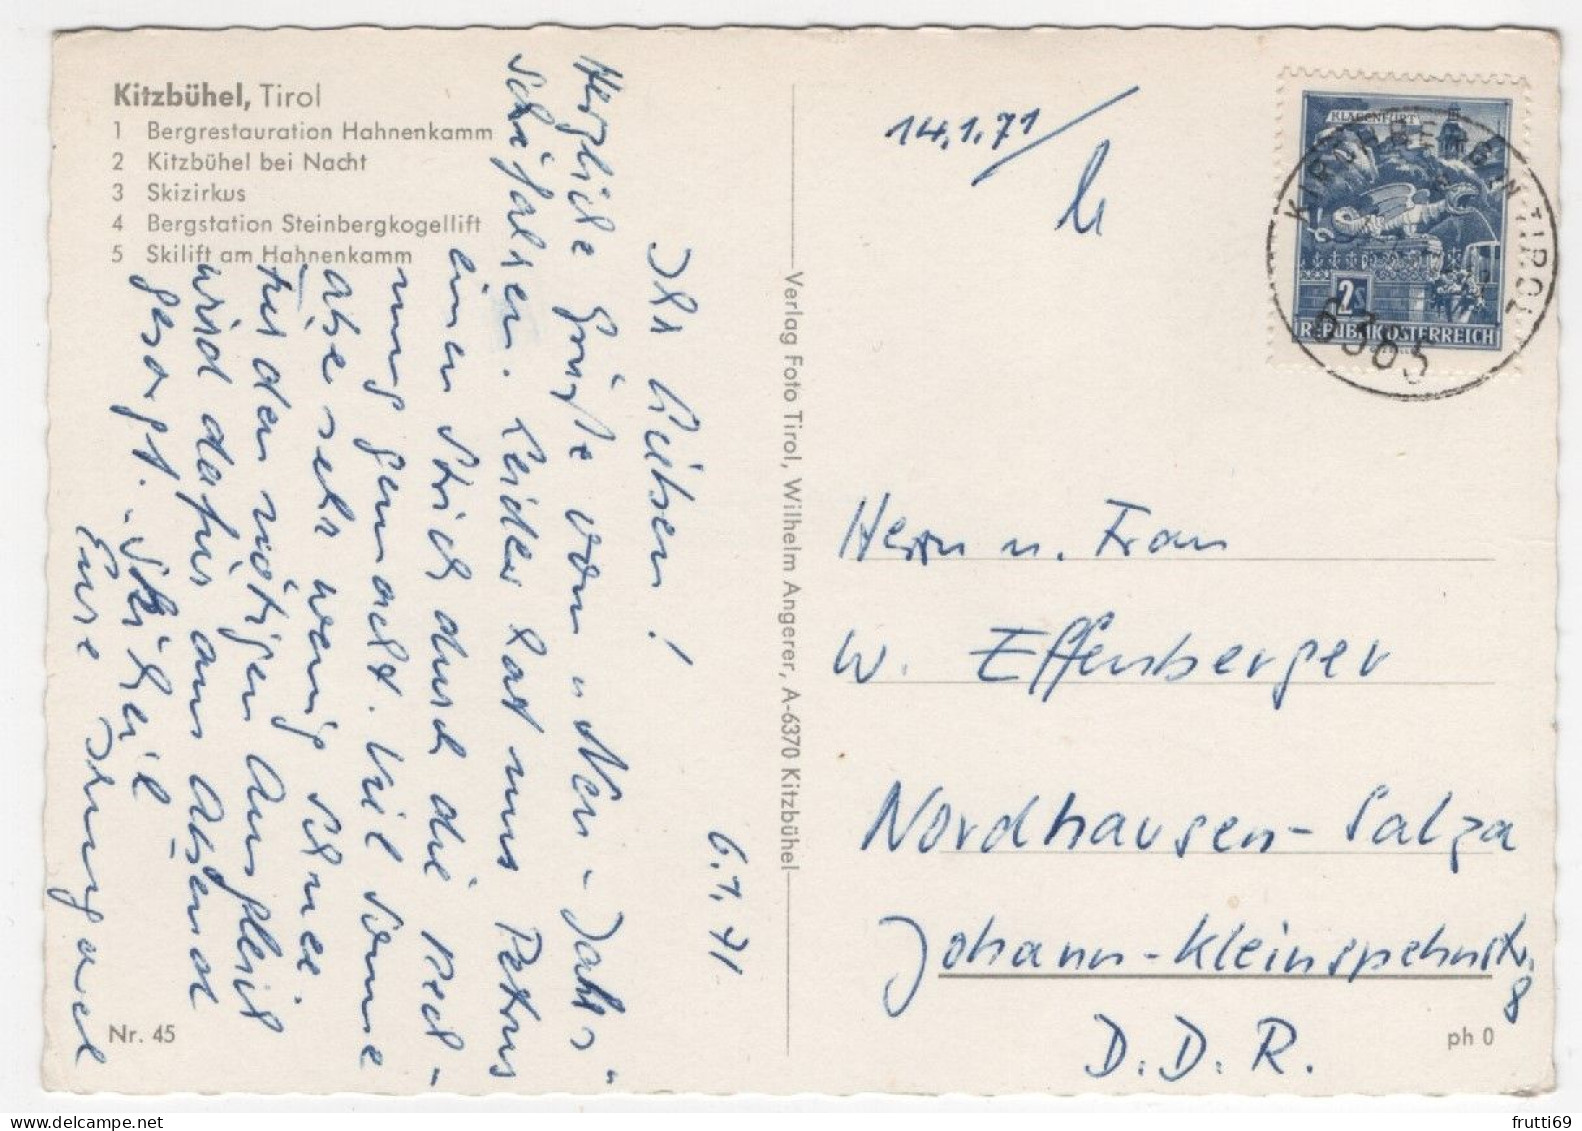 Kitzbühel, Tirol
1 Bergrestauration Hahnenkamm
2 Kitzbühel bei Nacht
3 Skizirkus
4 Bergstation Steinbergkogellift
5 Skilift am Hahnenkamm
6.1.71
Ihr Lieben!
Herzliche Grüße vom „Neu-Jahrs"
Schifahren. Leider hat uns Petrus
einen Strich durch die Rech-
nung gemacht. Viel Sonne
aber sehr wenig Schnee.
Für den nötigen Ausgleich
wird dafür am Abend
gesorgt. Ski heil
Eure
Nr. 45
Verlag Foto Tirol, Wilhelm Angerer, A-6370 Kitzbühel
14.1.71
KLAGENFURT
2S
REPUBLIK ÖSTERREICH
KIRCHBERG IN TIROL
6365
Herrn u. Frau
W. Effenberger
Nordhausen-Salza
Johann-Kleinspehnstr.
8
D.D.R.
ph 0
frutti69